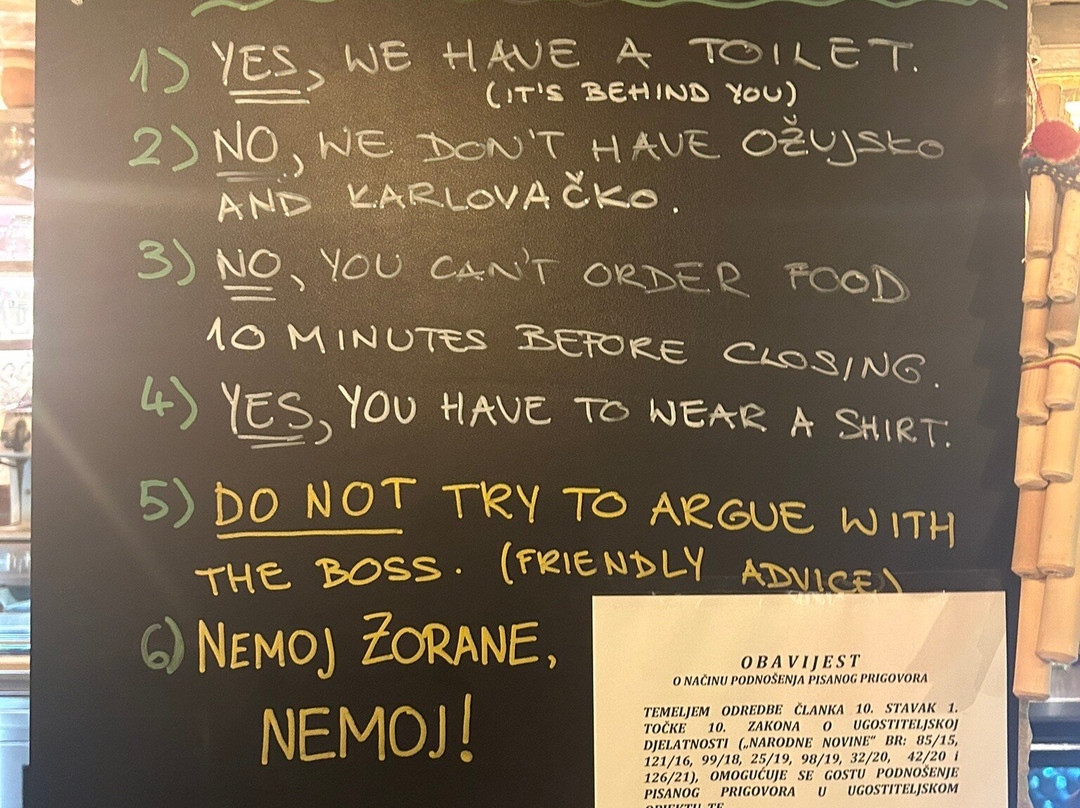 1) YES, WE HAVE A TOILET.
(IT'S BEHIND YOU)
2) NO, WE DON'T HAVE OŽUJSKO
AND KARLOVAČKO.
3) NO, YOU CAN'T ORDER FOOD
10 MINUTES BEFORE CLOSING.
4) YES, YOU HAVE TO WEAR A SHIRT.
5) DO NOT TRY TO ARGUE WITH
THE BOSS. (FRIENDLY ADVICE)
6) NEMOJ ZORANE,
NEMOJ!
OBAVIJEST
O NAČINU PODNOŠENJA PISANOG PRIGOVORA
TEMELJEM ODREDBE ČLANKA 10. STAVAK 1.
TOČKE 10. ZAKONA O UGOSTITELJSKOJ
DJELATNOSTI („NARODNE NOVINE" BR: 85/15,
121/16, 99/18, 25/19, 98/19, 32/20, 42/20 i
126/21), OMOGUĆUJE SE GOSTU PODNOŠENJE
PISANOG PRIGOVORA U UGOSTITELJSKOM